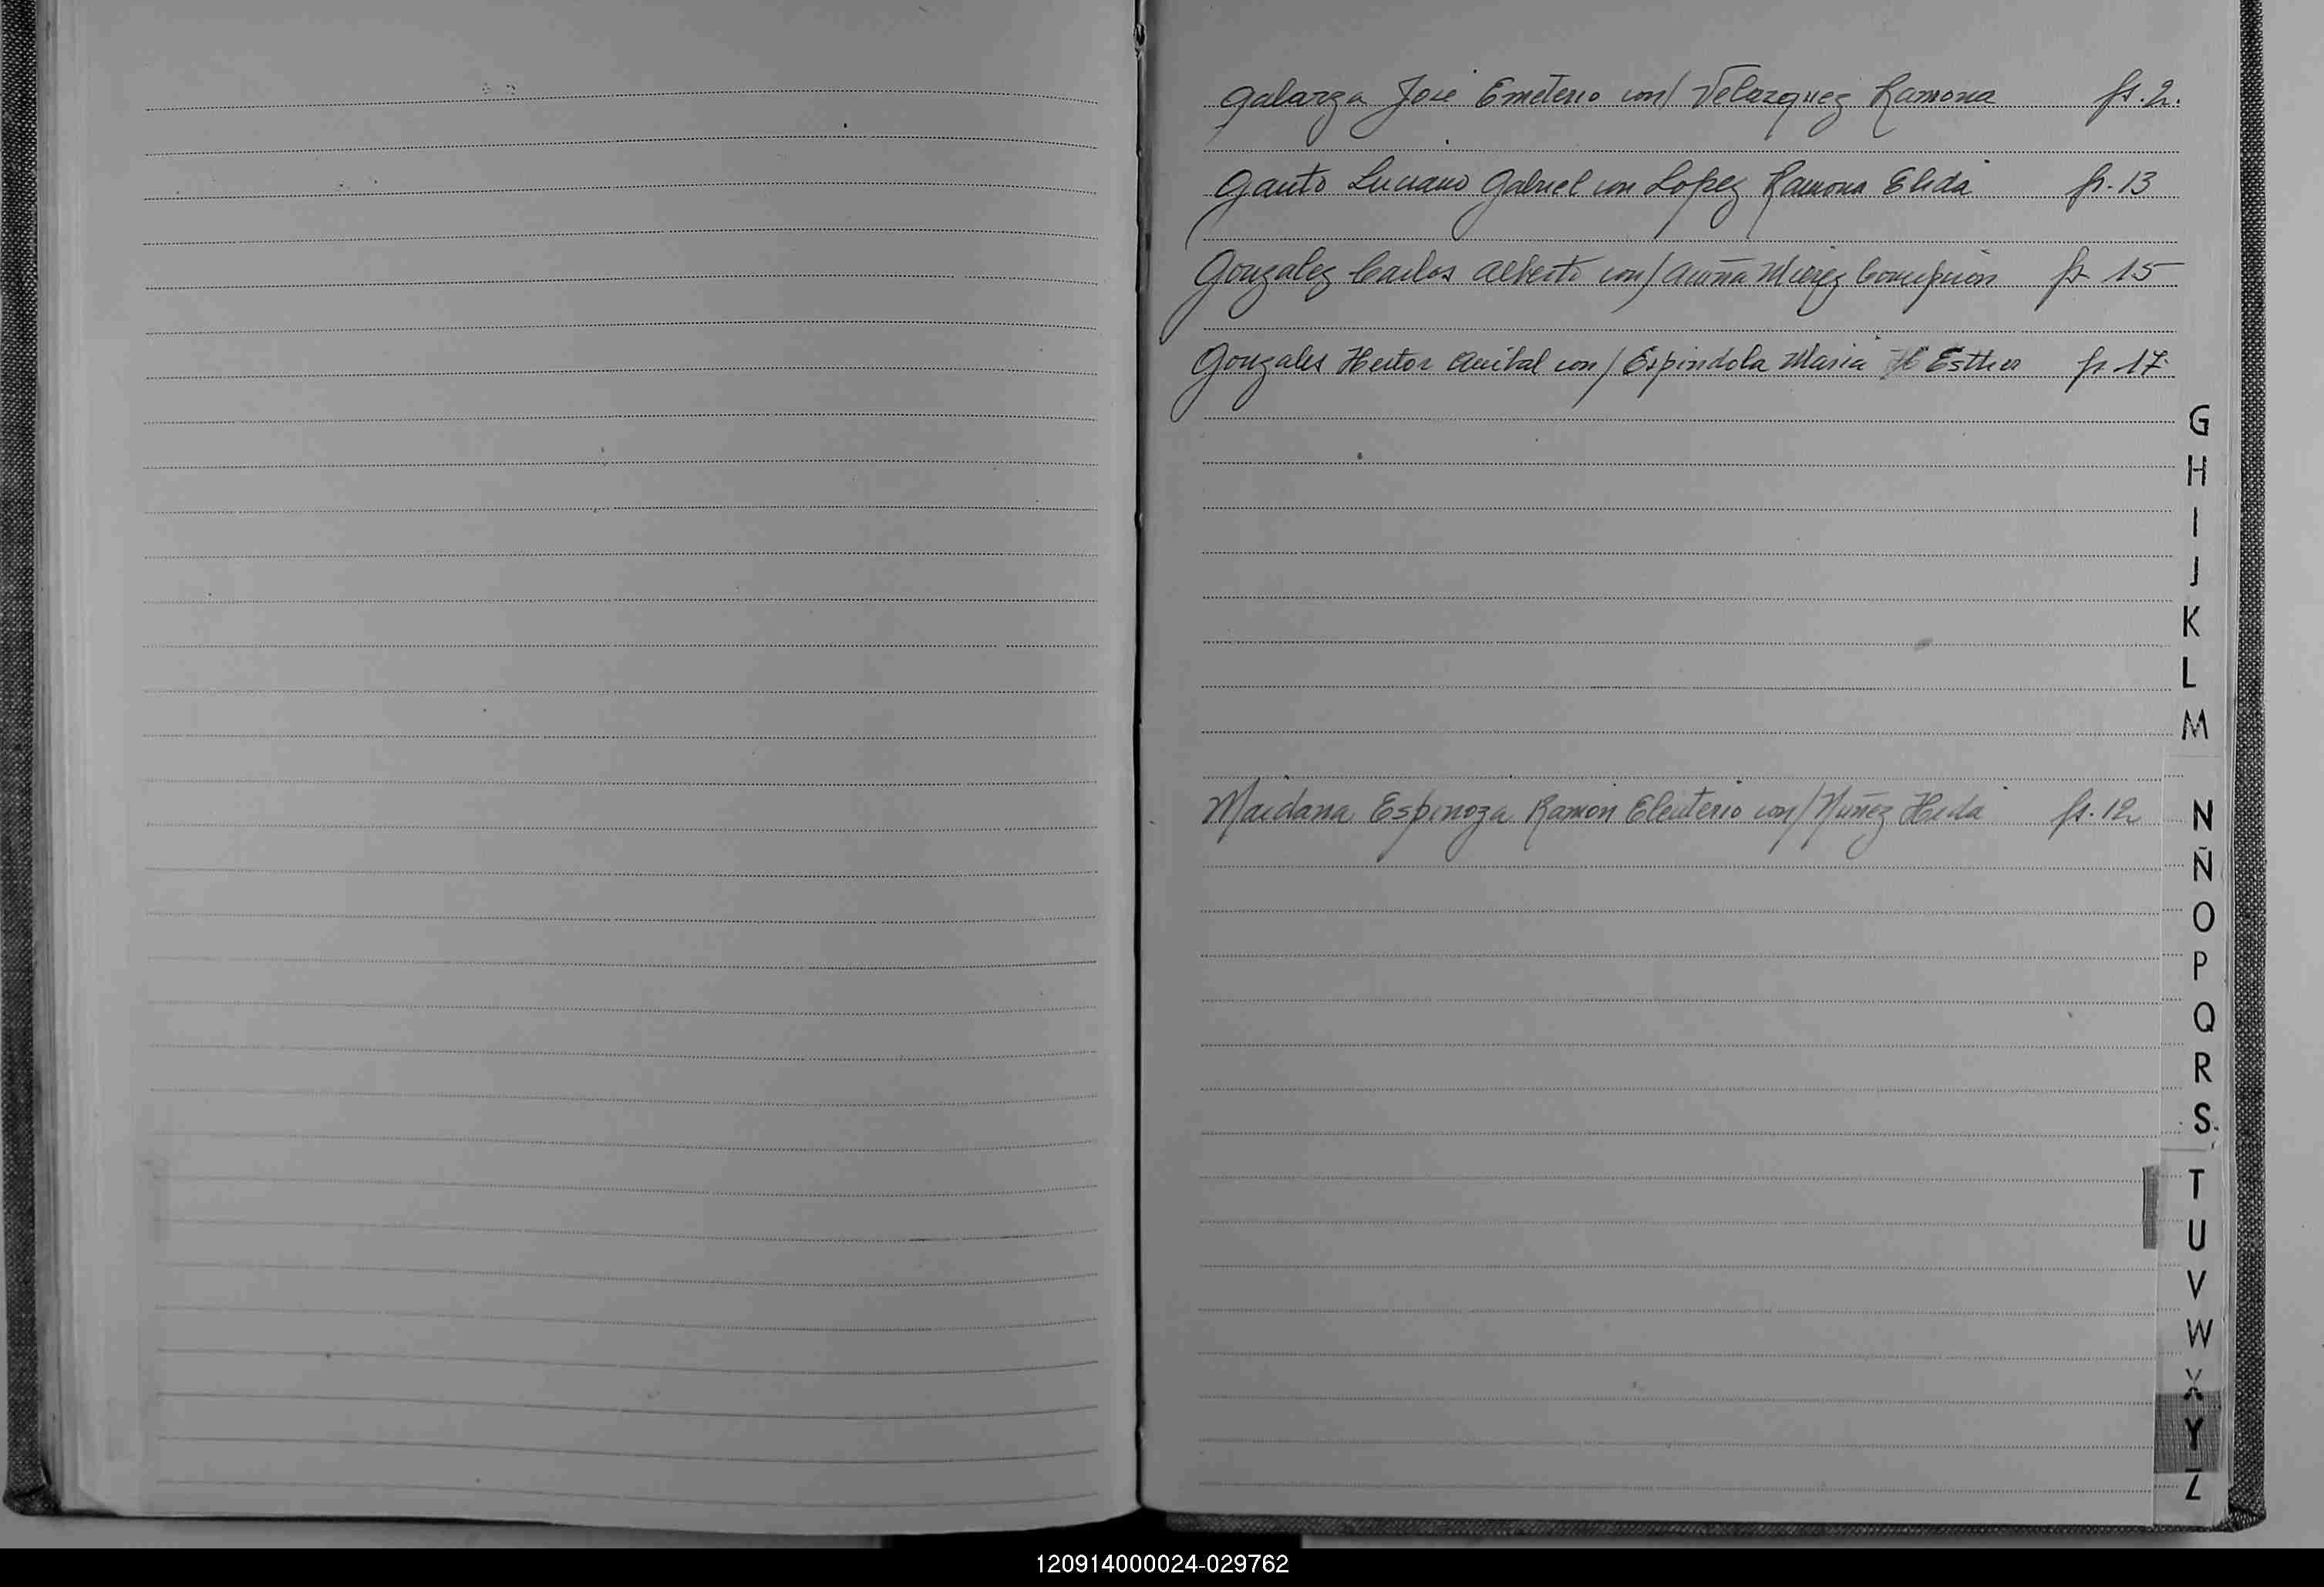 Galarza José Emeterio con/ Velazquez Ramona fs. 2.
Gauto Luciano Gabriel con Lopez Ramona Elida fs. 13
Gonzalez Carlos Alberto con/ Acuña Mierez Concepcion fs 15
Gonzales Hector Anibal con/ Espindola Maria Esther fs. 17.
G
H
I
J
K
L
M
Maidana Espinoza Ramón Eleuterio con/ Nuñez fs. 12
N
Ñ
O
P
Q
R
S
T
U
V
W
X
Y
Z
120914000024-029762